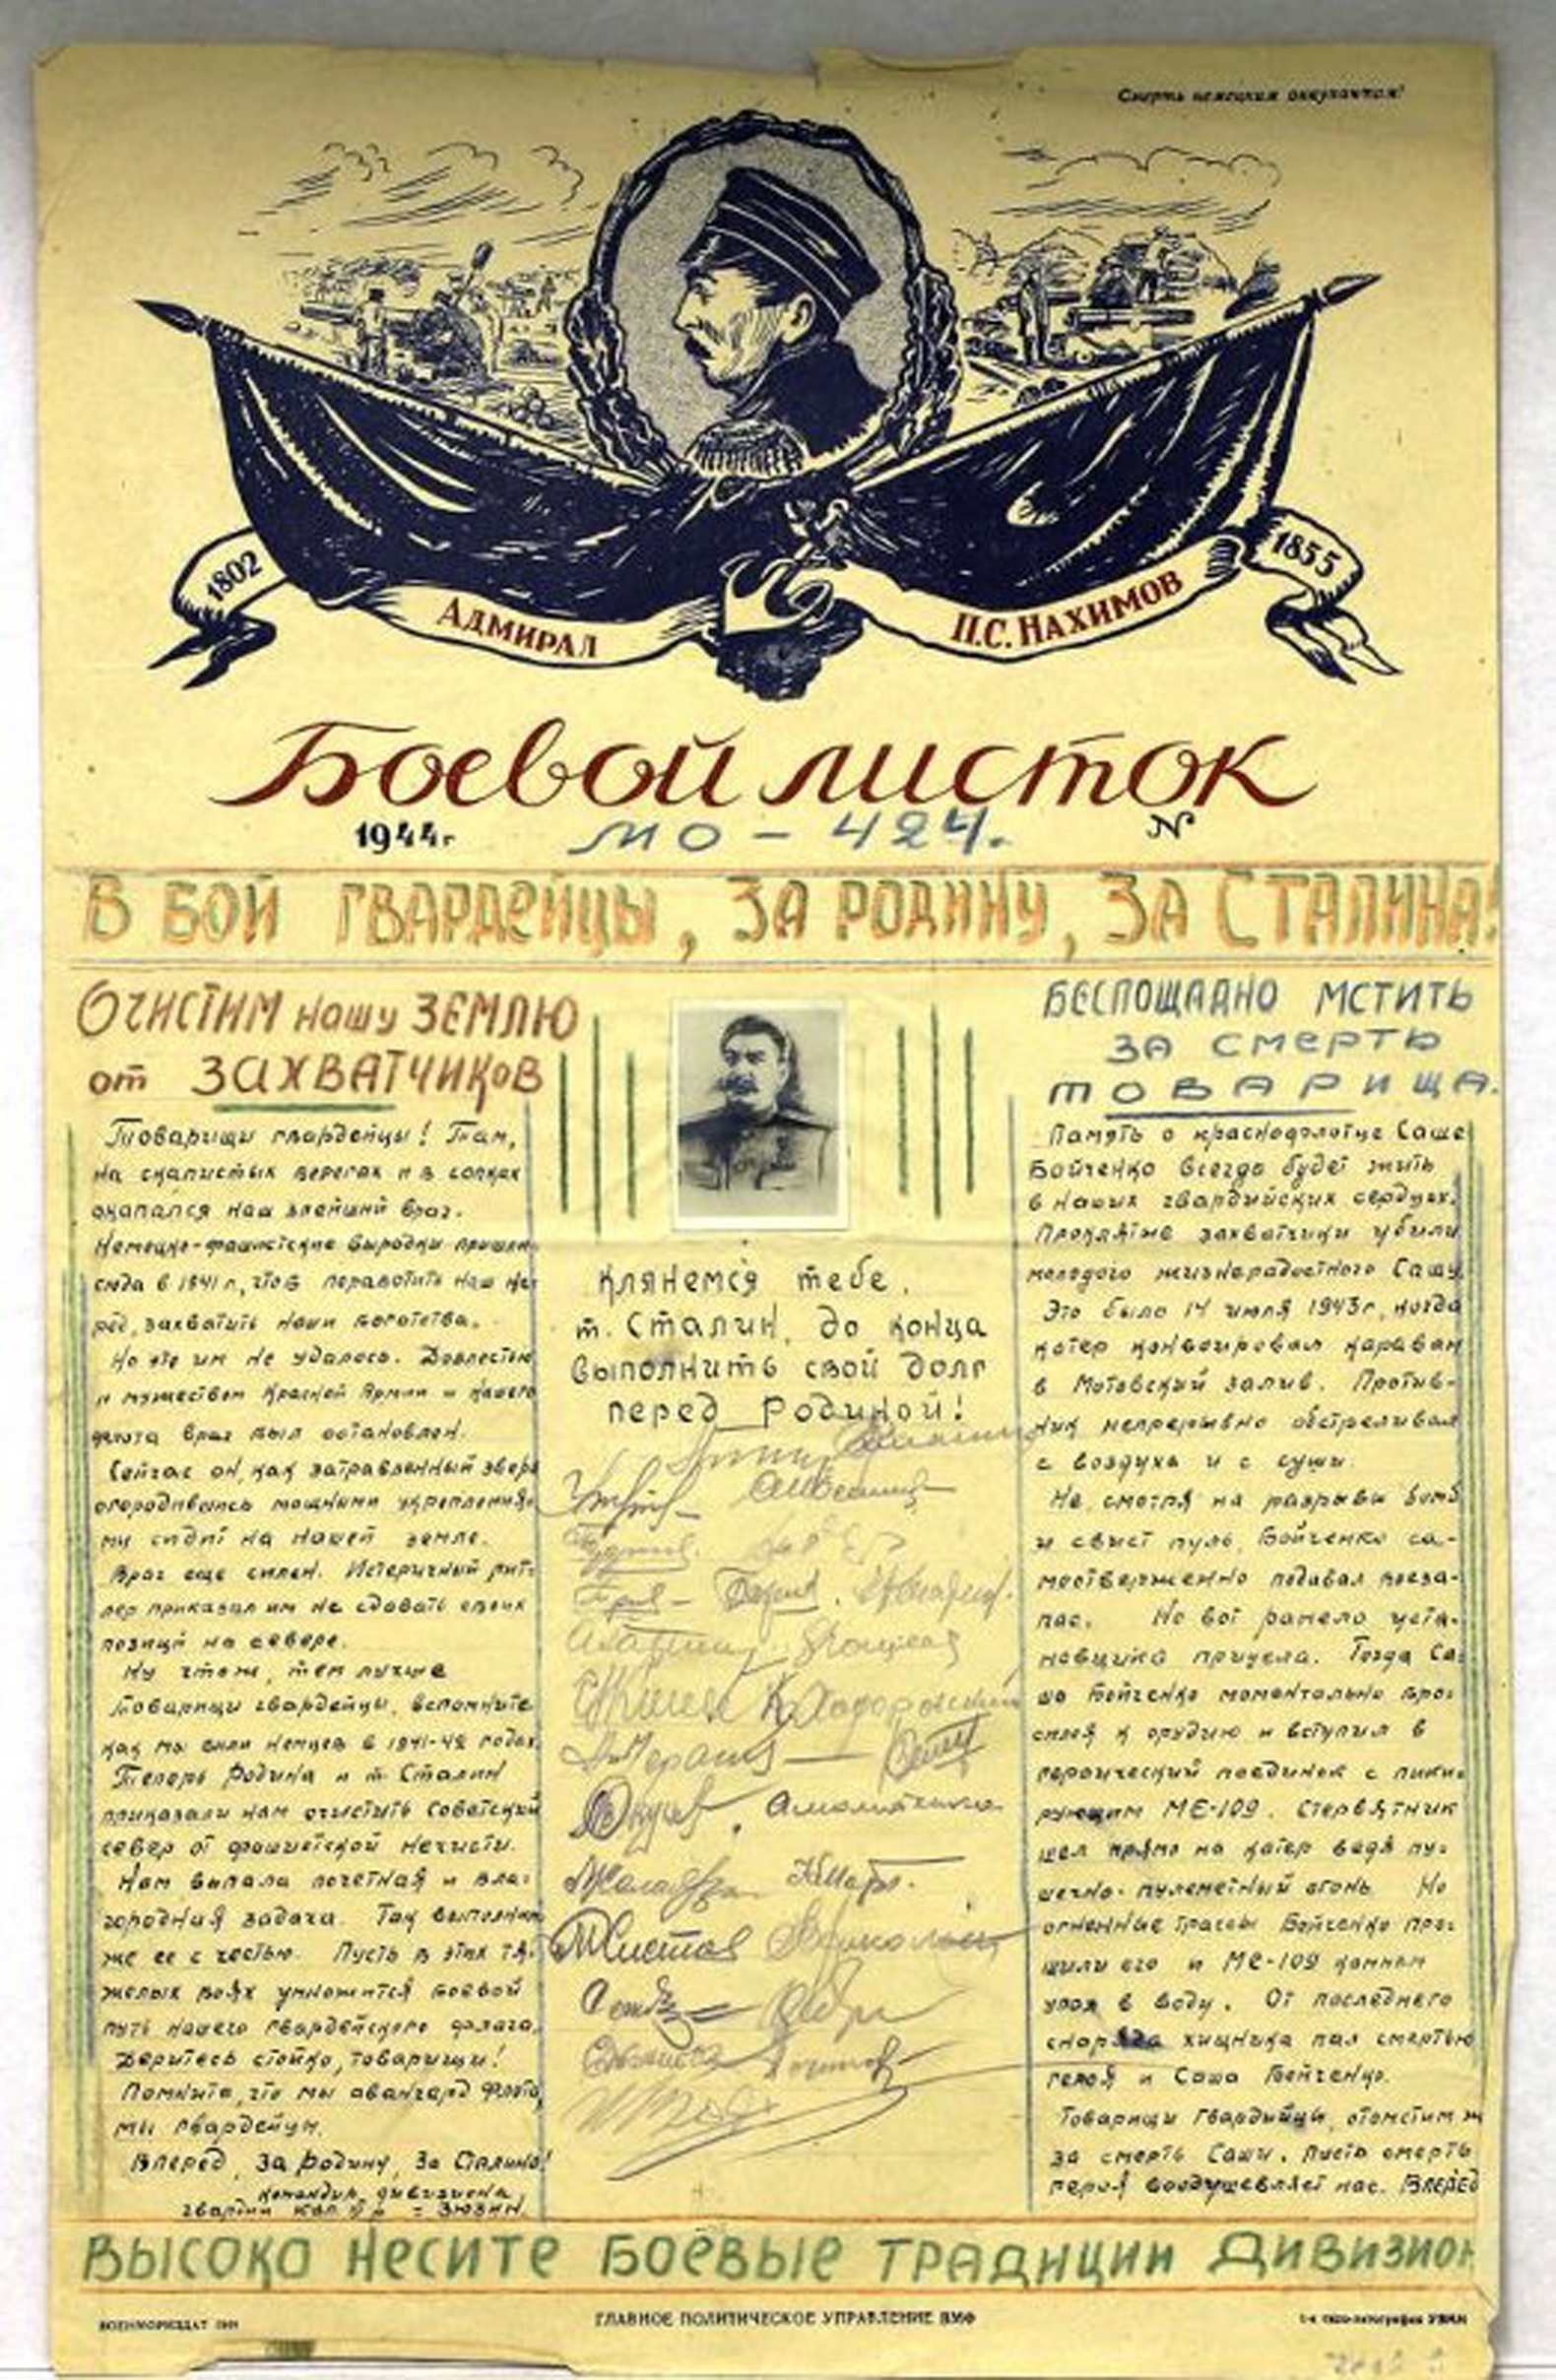 Смерть немецким оккупантам!
1802
АДМИРАЛ
П.С. НАХИМОВ
1855
Боевой листок
1944г
МО - 424.
№
В БОЙ ГВАРДЕЙЦЫ, ЗА РОДИНУ, ЗА СТАЛИНА!
ОЧИСТИМ нашу ЗЕМЛЮ
от ЗАХВАТЧИКОВ
Товарищи гвардейцы! Там,
на скалистых берегах и в сопках
окопался наш злейший враг.
Немецко-фашистские выродки пришли
сюда в 1941 г, чтоб поработить наш на-
род, захватить наши богатства.
Но это им не удалось. Доблестью
и мужеством Красной Армии и нашего
флота враг был остановлен.
Сейчас он, как затравленный зверь
огородившись мощными укрепления-
ми сидит на нашей земле.
Враг еще силен. Истеричный гит-
лер приказал им не сдавать своих
позиций на севере.
Ну что ж, тем лучше
Товарищи гвардейцы, вспомните
как мы били немцев в 1941-42 годах.
Теперь Родина и т. Сталин
приказали нам очистить Советский
север от фашистской нечисти.
Нам выпала почетная и бла-
городная задача. Так выполним
же ее с честью. Пусть в этих тя-
желых боях умножится боевой
путь нашего гвардейского флага.
Деритесь стойко, товарищи!
Помните, что мы авангард флота,
мы гвардейцы.
Вперед, за Родину, За Сталина!
командир дивизиона
гвардии кап = Зюзин.
КЛЯНЕМСЯ тебе,
т. Сталин, до конца
выполнить свой долг
перед Родиной!
БЕСПОЩАДНО МСТИТЬ
ЗА СМЕРТЬ
ТОВАРИЩА.
Память о краснофлотце Саше
Бойченко всегда будет жить
в наших гвардейских сердцах.
Проклятые захватчики убили
молодого жизнерадостного Сашу.
Это было 14 июля 1943г, когда
катер конвоировал караван
в Мотовский залив. Против-
ник непрерывно обстреливал
с воздуха и с суши.
Не смотря на разрывы бомб
и свист пуль, Бойченко са-
моотверженно подавал боеза-
пас. Но вот ранело уста-
новщика прицела. Тогда Са-
ша Бойченко моментально бро-
сился к орудию и вступил в
героический поединок с пики-
рующим МЕ-109. Стервятник
шел прямо на катер ведя пу-
шечно-пулеметный огонь. Но
огненные трассы Бойченко про-
шили его и МЕ-109 камнем
упал в воду. От последнего
снаряда хищника пал смертью
героя и Саша Бойченко.
Товарищи Гвардейцы, отомстим ж
за смерть Саши. Пусть смерть
героя воодушевляет нас. ВПЕРЁД
ВЫСОКО НЕСИТЕ БОЕВЫЕ ТРАДИЦИИ ДИВИЗИОН
ВОЕНМОРИЗДАТ
ГЛАВНОЕ ПОЛИТИЧЕСКОЕ УПРАВЛЕНИЕ ВМФ
1-я типо-литография